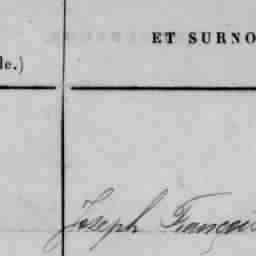 ET SURNO
le.)
Joseph François